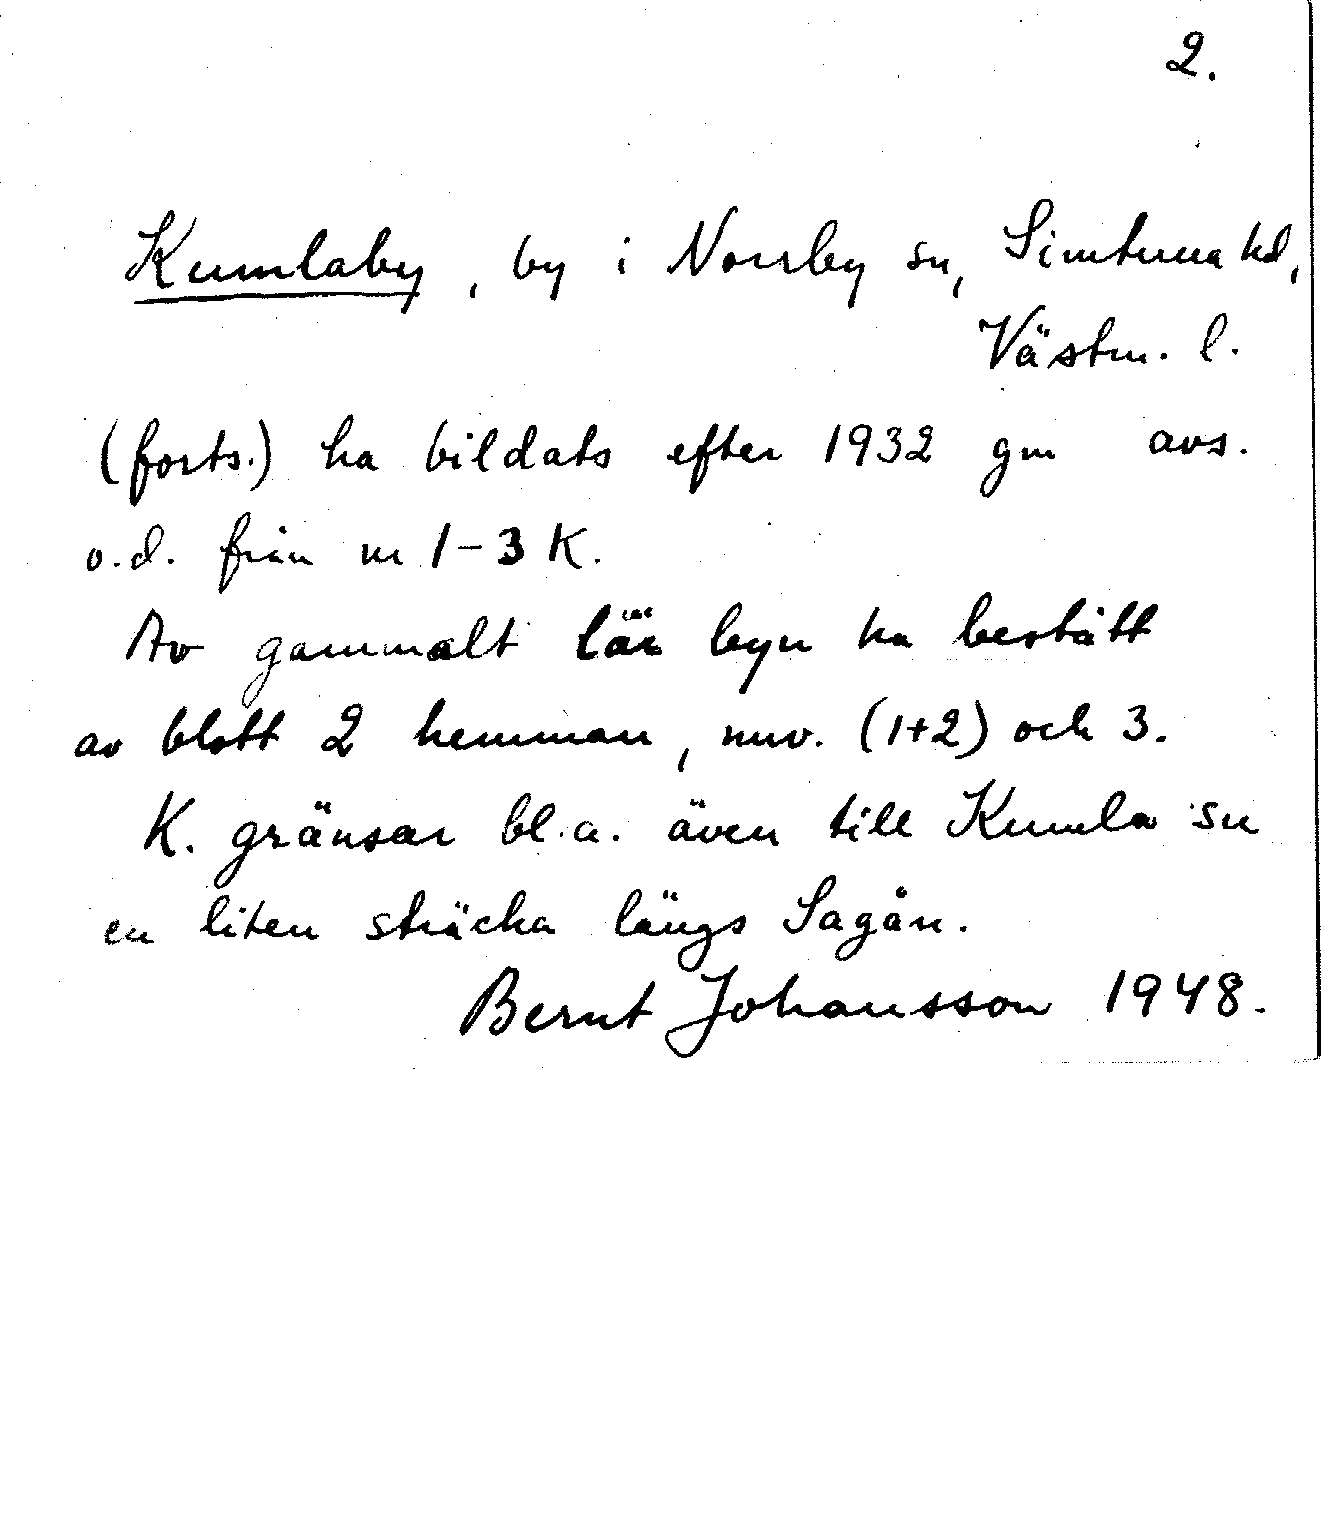 2.
Kumlaby, by i Norrby sn, Simtuna hd,
Västm. l.
(forts.) ha bildats efter 1932 gm avs.
o.d. från nr 1-3 K.
Av gammalt lär byn ha bestått
av blott 2 hemman, nuv. (1+2) och 3.
K. gränsar bl.a. även till Kumla sn
en liten sträcka längs Sagån.
Bernt Johansson 1948.